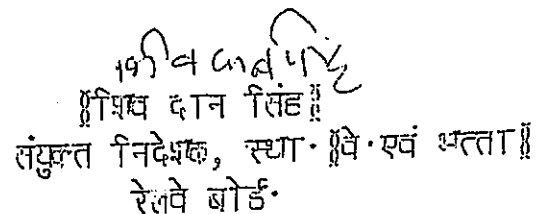 ॥शिव दान सिंह॥
संयुक्त निदेशक, स्था॰ ॥वे॰ एवं भत्ता॥
रेलवे बोर्ड॰